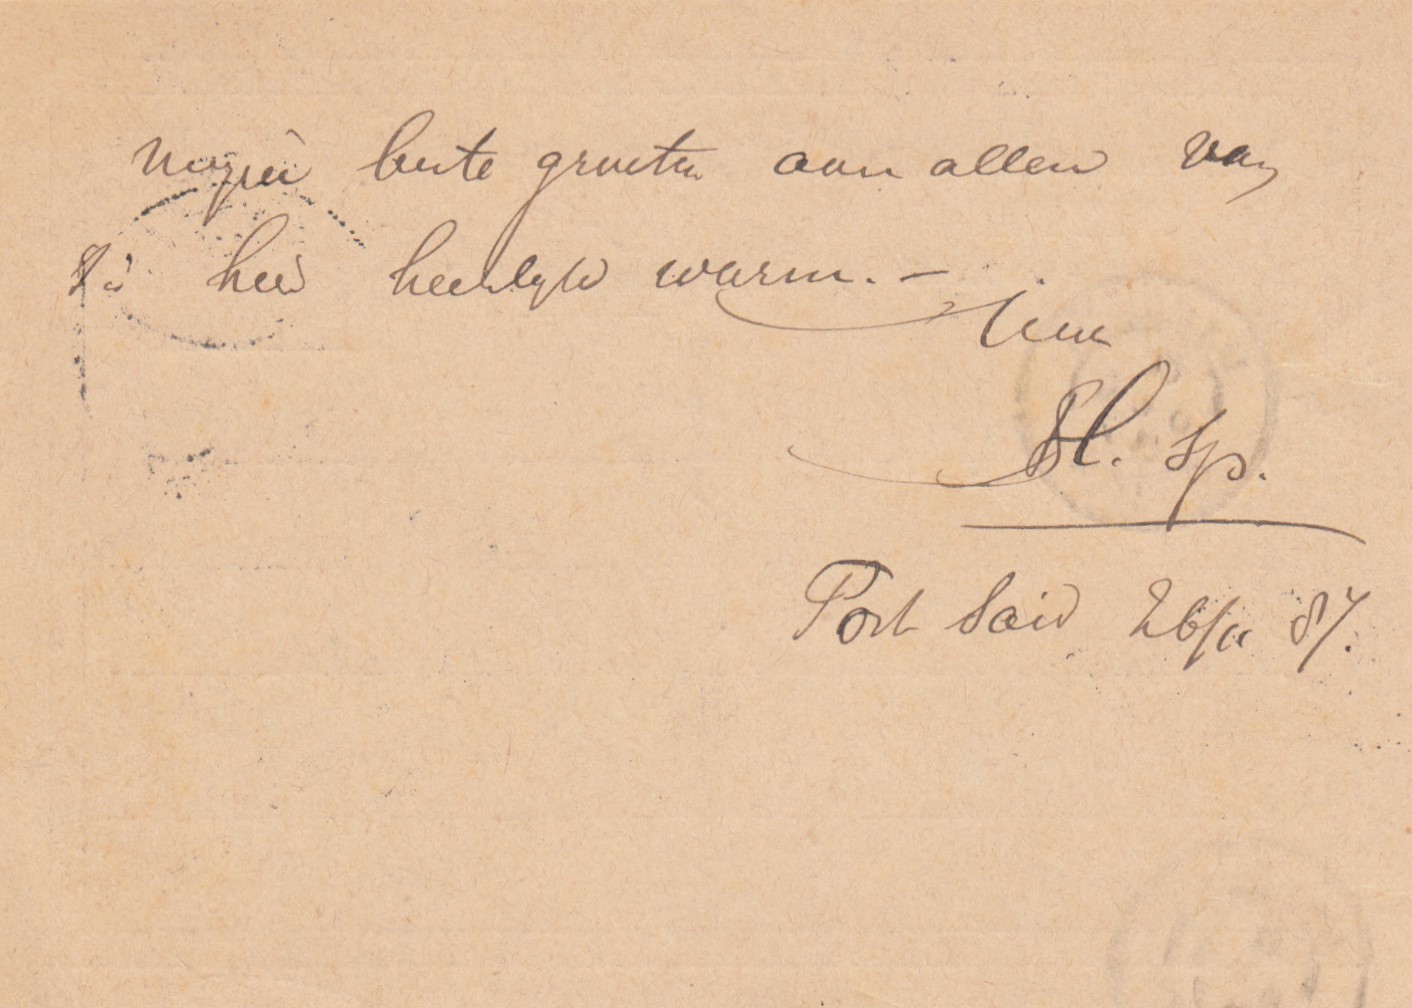 beste groeten aan allen van
hier heerlijk warm. –
H. Sp.
Port Said 26/11 87.